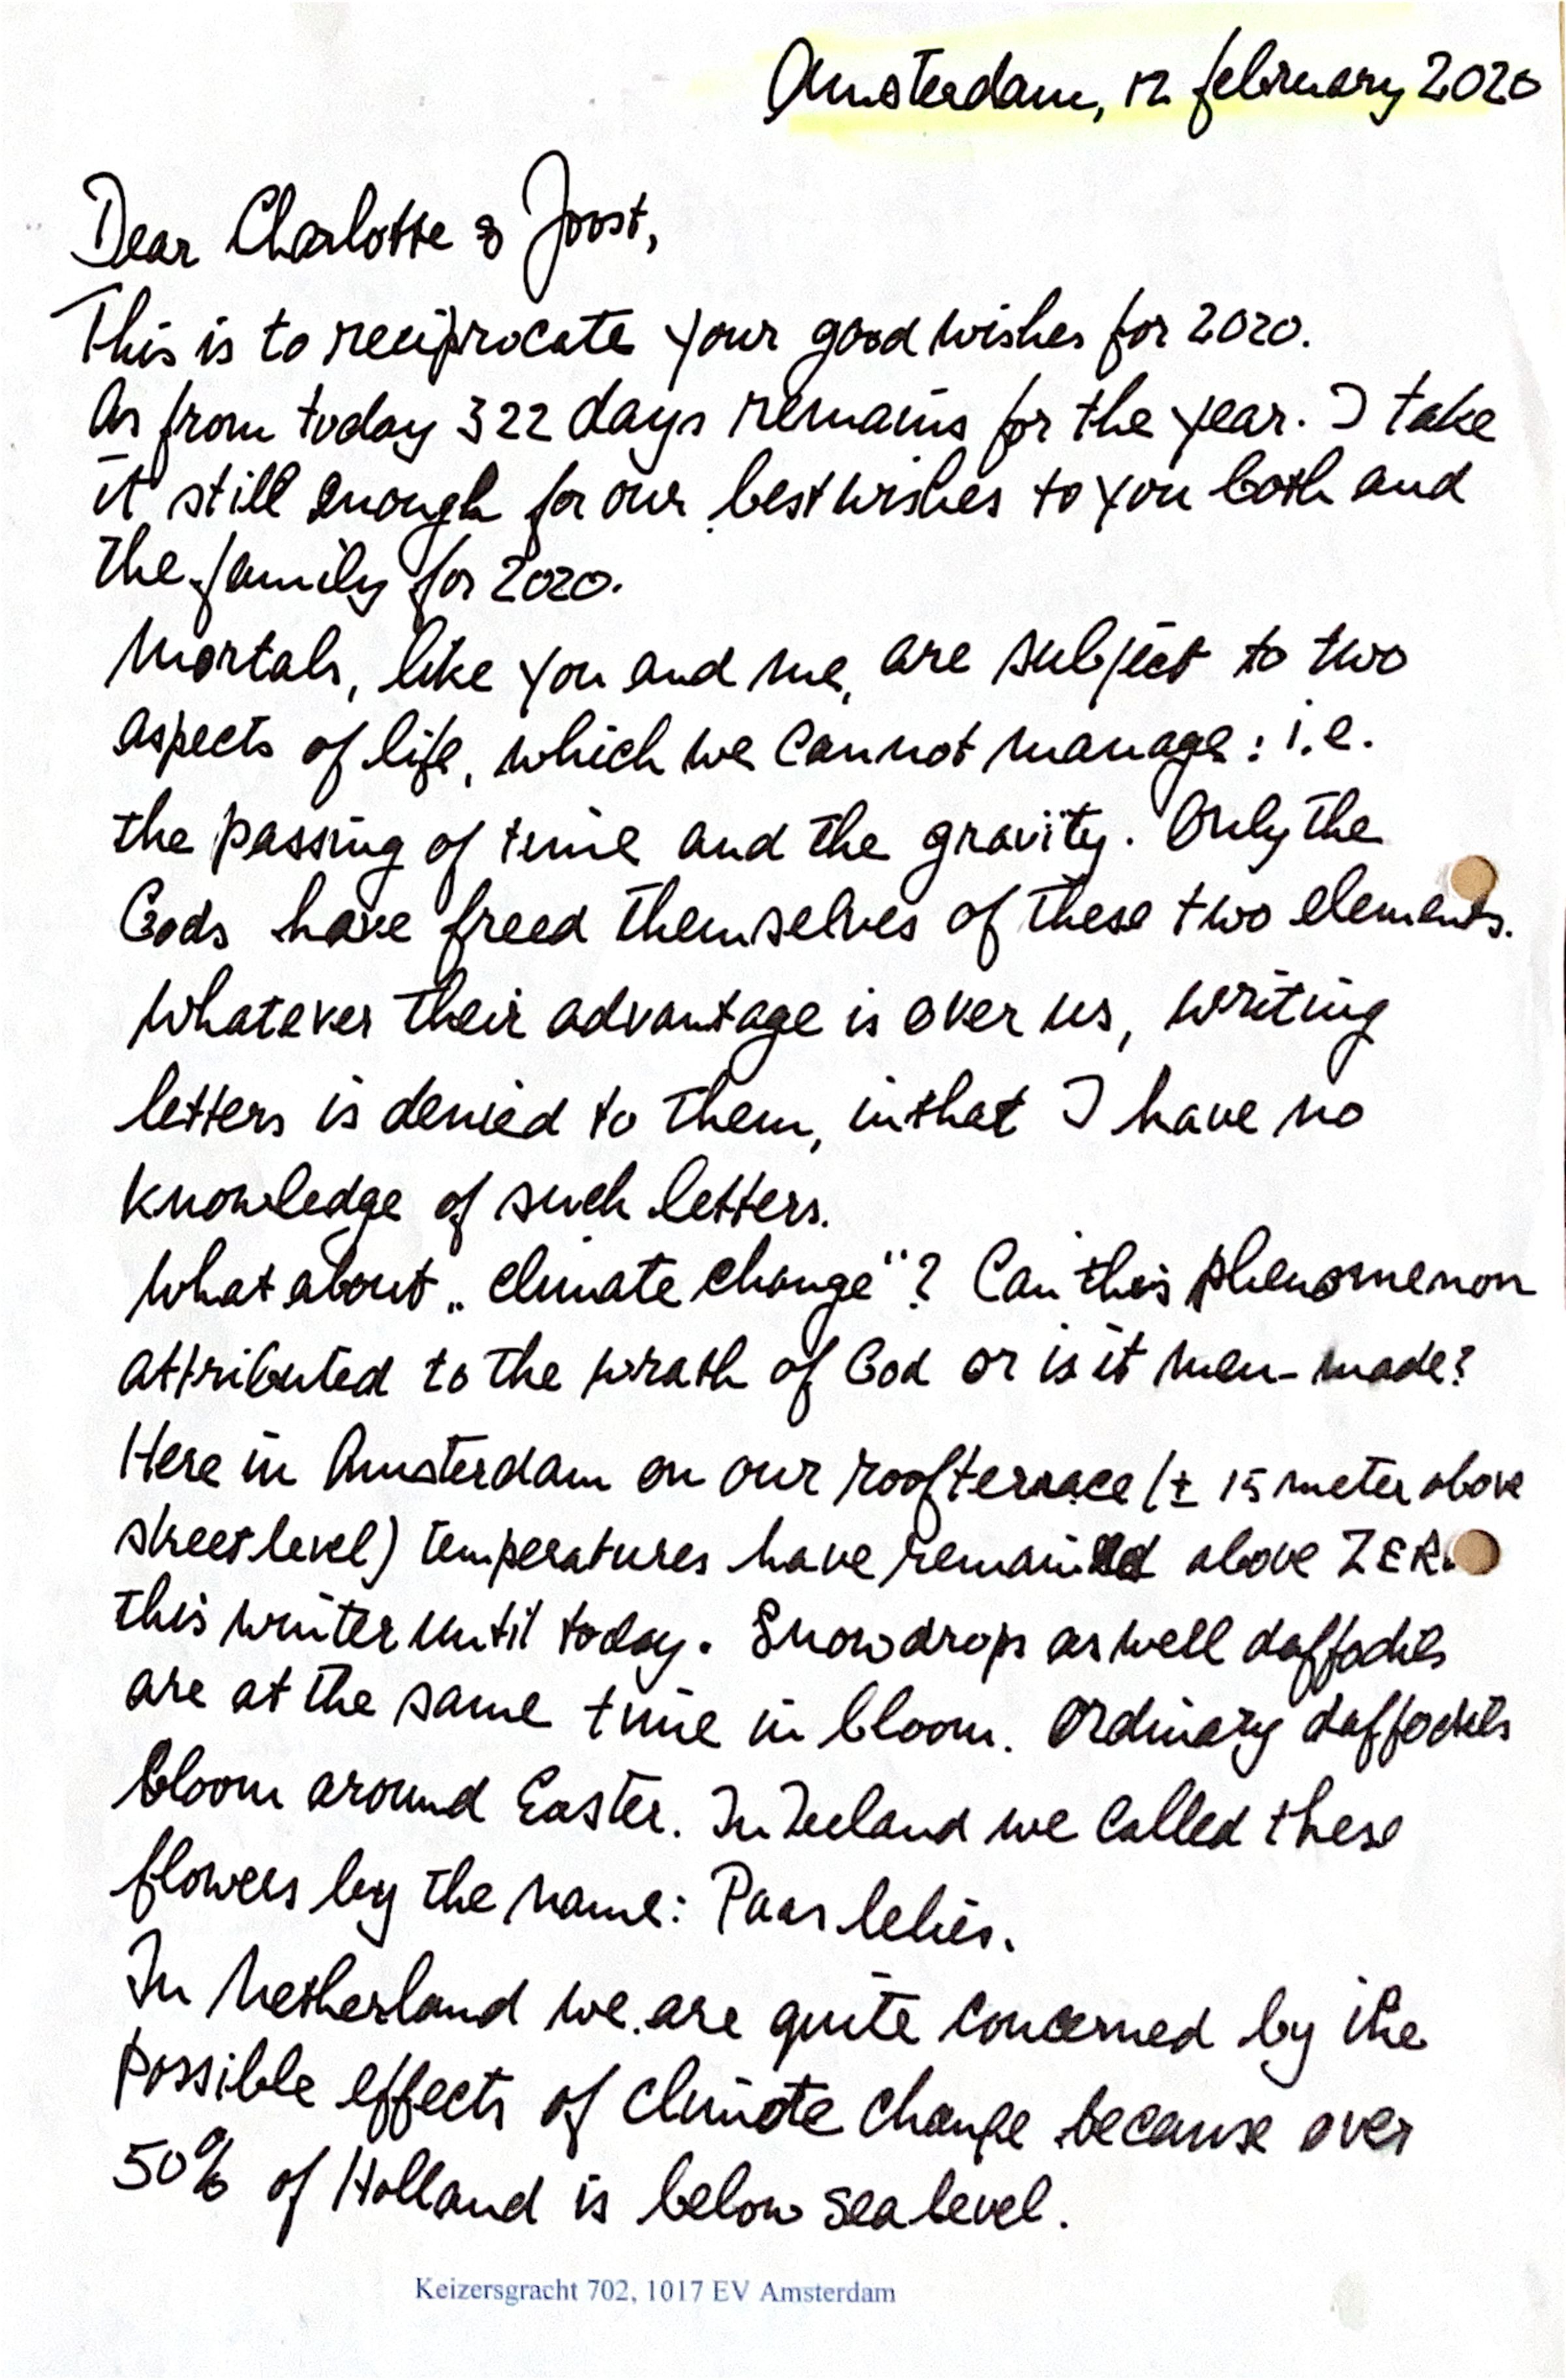 Amsterdam, 12 february 2020
Dear Charlotte & Joost,
This is to reciprocate your good wishes for 2020.
As from today 322 days remains for the year. I take
it still enough for our best wishes to you both and
the family for 2020.
Mortals, like you and me, are subject to two
aspects of life, which we cannot manage: i.e.
the passing of time and the gravity. Only the
Gods have freed themselves of these two elements.
Whatever their advantage is over us, writing
letters is denied to them, in that I have no
knowledge of such letters.
What about „climate change"? Can this phenomenon
attributed to the wrath of God or is it men-made?
Here in Amsterdam on our roofterrace (± 15 meter above
street level) temperatures have remained above ZERO
this winter until today. Snowdrops as well daffodils
are at the same time in bloom. Ordinary daffodils
bloom around Easter. In Zeeland we called these
flowers by the name: Paas lelies.
In Netherland we are quite concerned by the
possible effects of climate change because over
50% of Holland is below sea level.
Keizersgracht 702, 1017 EV Amsterdam